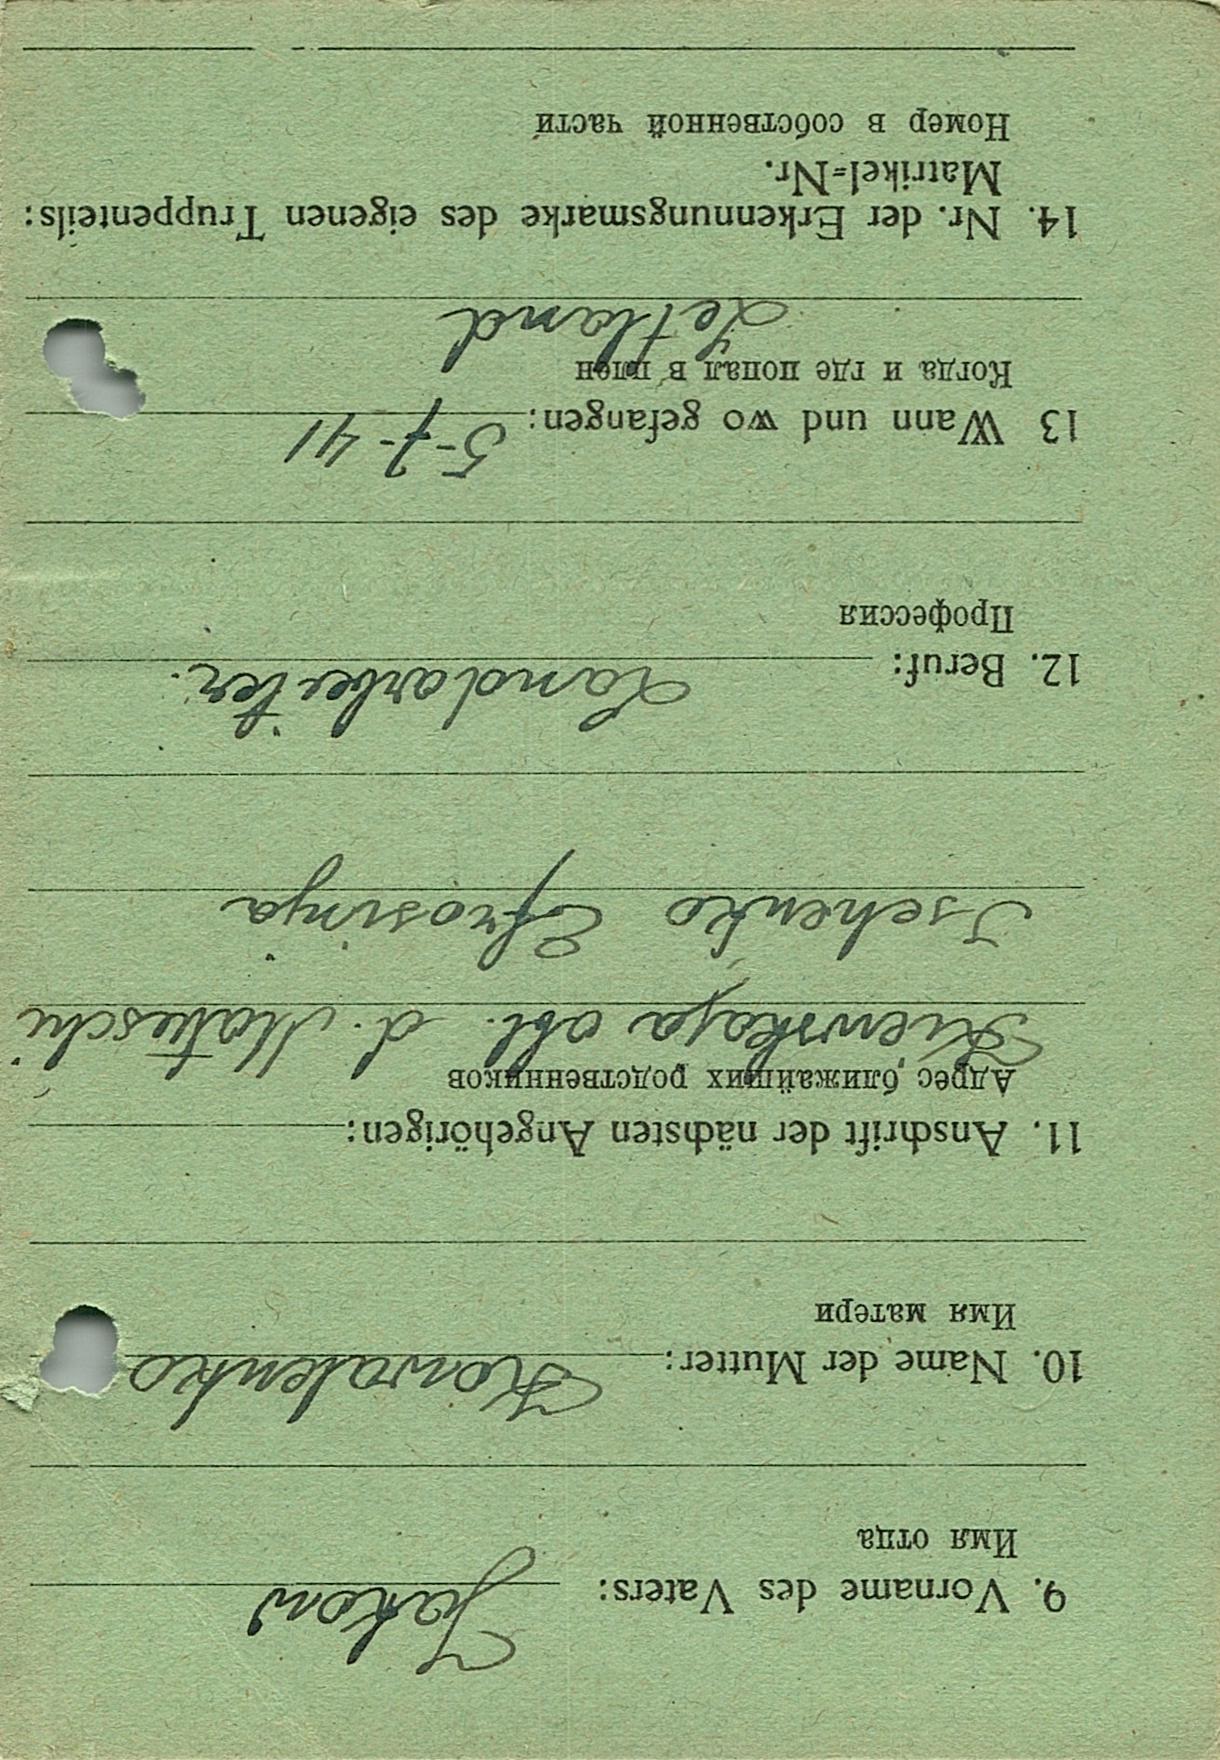 9. Vorname des Vaters: Jakow
Имя отца
10. Name der Mutter: Kowalenko
Имя матери
11. Anschrift der nächsten Angehörigen:
Адрес ближайших родственников
Kiewskaja obl. d.
Ischenko Efrosinja
12. Beruf: Landarbeiter.
Профессия
13 Wann und wo gefangen: 5-7-41
Когда и где попал в плен
Letland
14. Nr. der Erkennungsmarke des eigenen Truppenteils:
Matrikel-Nr.
Номер в собственной части